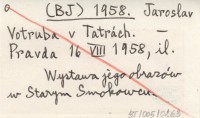 (BJ) 1958. Jaroslav
Votruba v Tatrách. —
Pravda 16 VIII 1958, il.
Wystawa jego obrazów
w Starym Smokowcu.